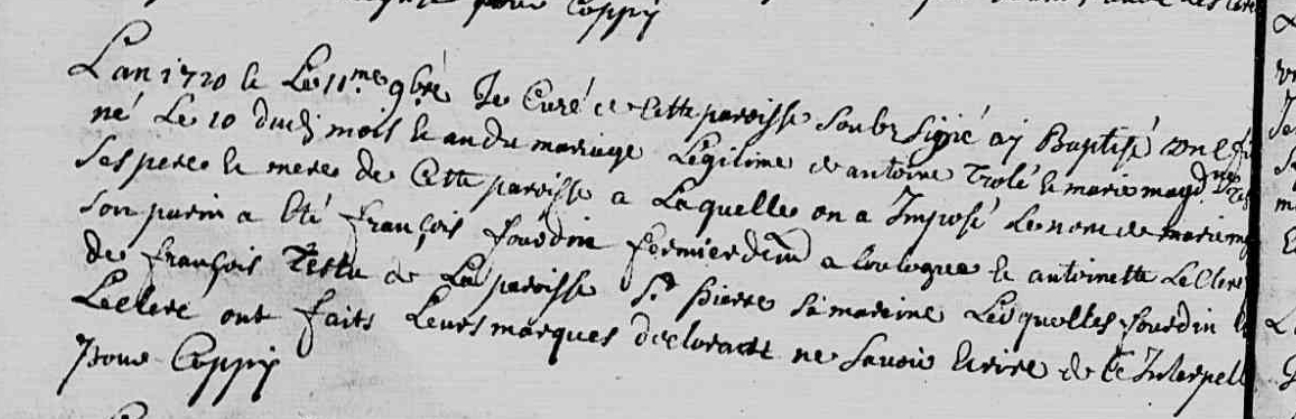 pour Coppÿ
L'an 1720 le Le 11.me 9bre Je Curé de Cette paroisse soubsigné aÿ Baptisé une fi
né Le 10 dudi mois le an du mariage Légitime de antoine Trolé le marie magd.
ses pere le mere de Cette paroisse a Laquelle on a Imposé Le nom de marie m
son parin a êté françois fourdin fermier dem a loulogne le antoinette Leclerc
de françois Testu de La paroisse St pierre sa mareine Lesquelles fourdin
Leclerc ont faits Leurs marques declorant ne savoir Ecrire de Ce Interpell
pour Coppÿ